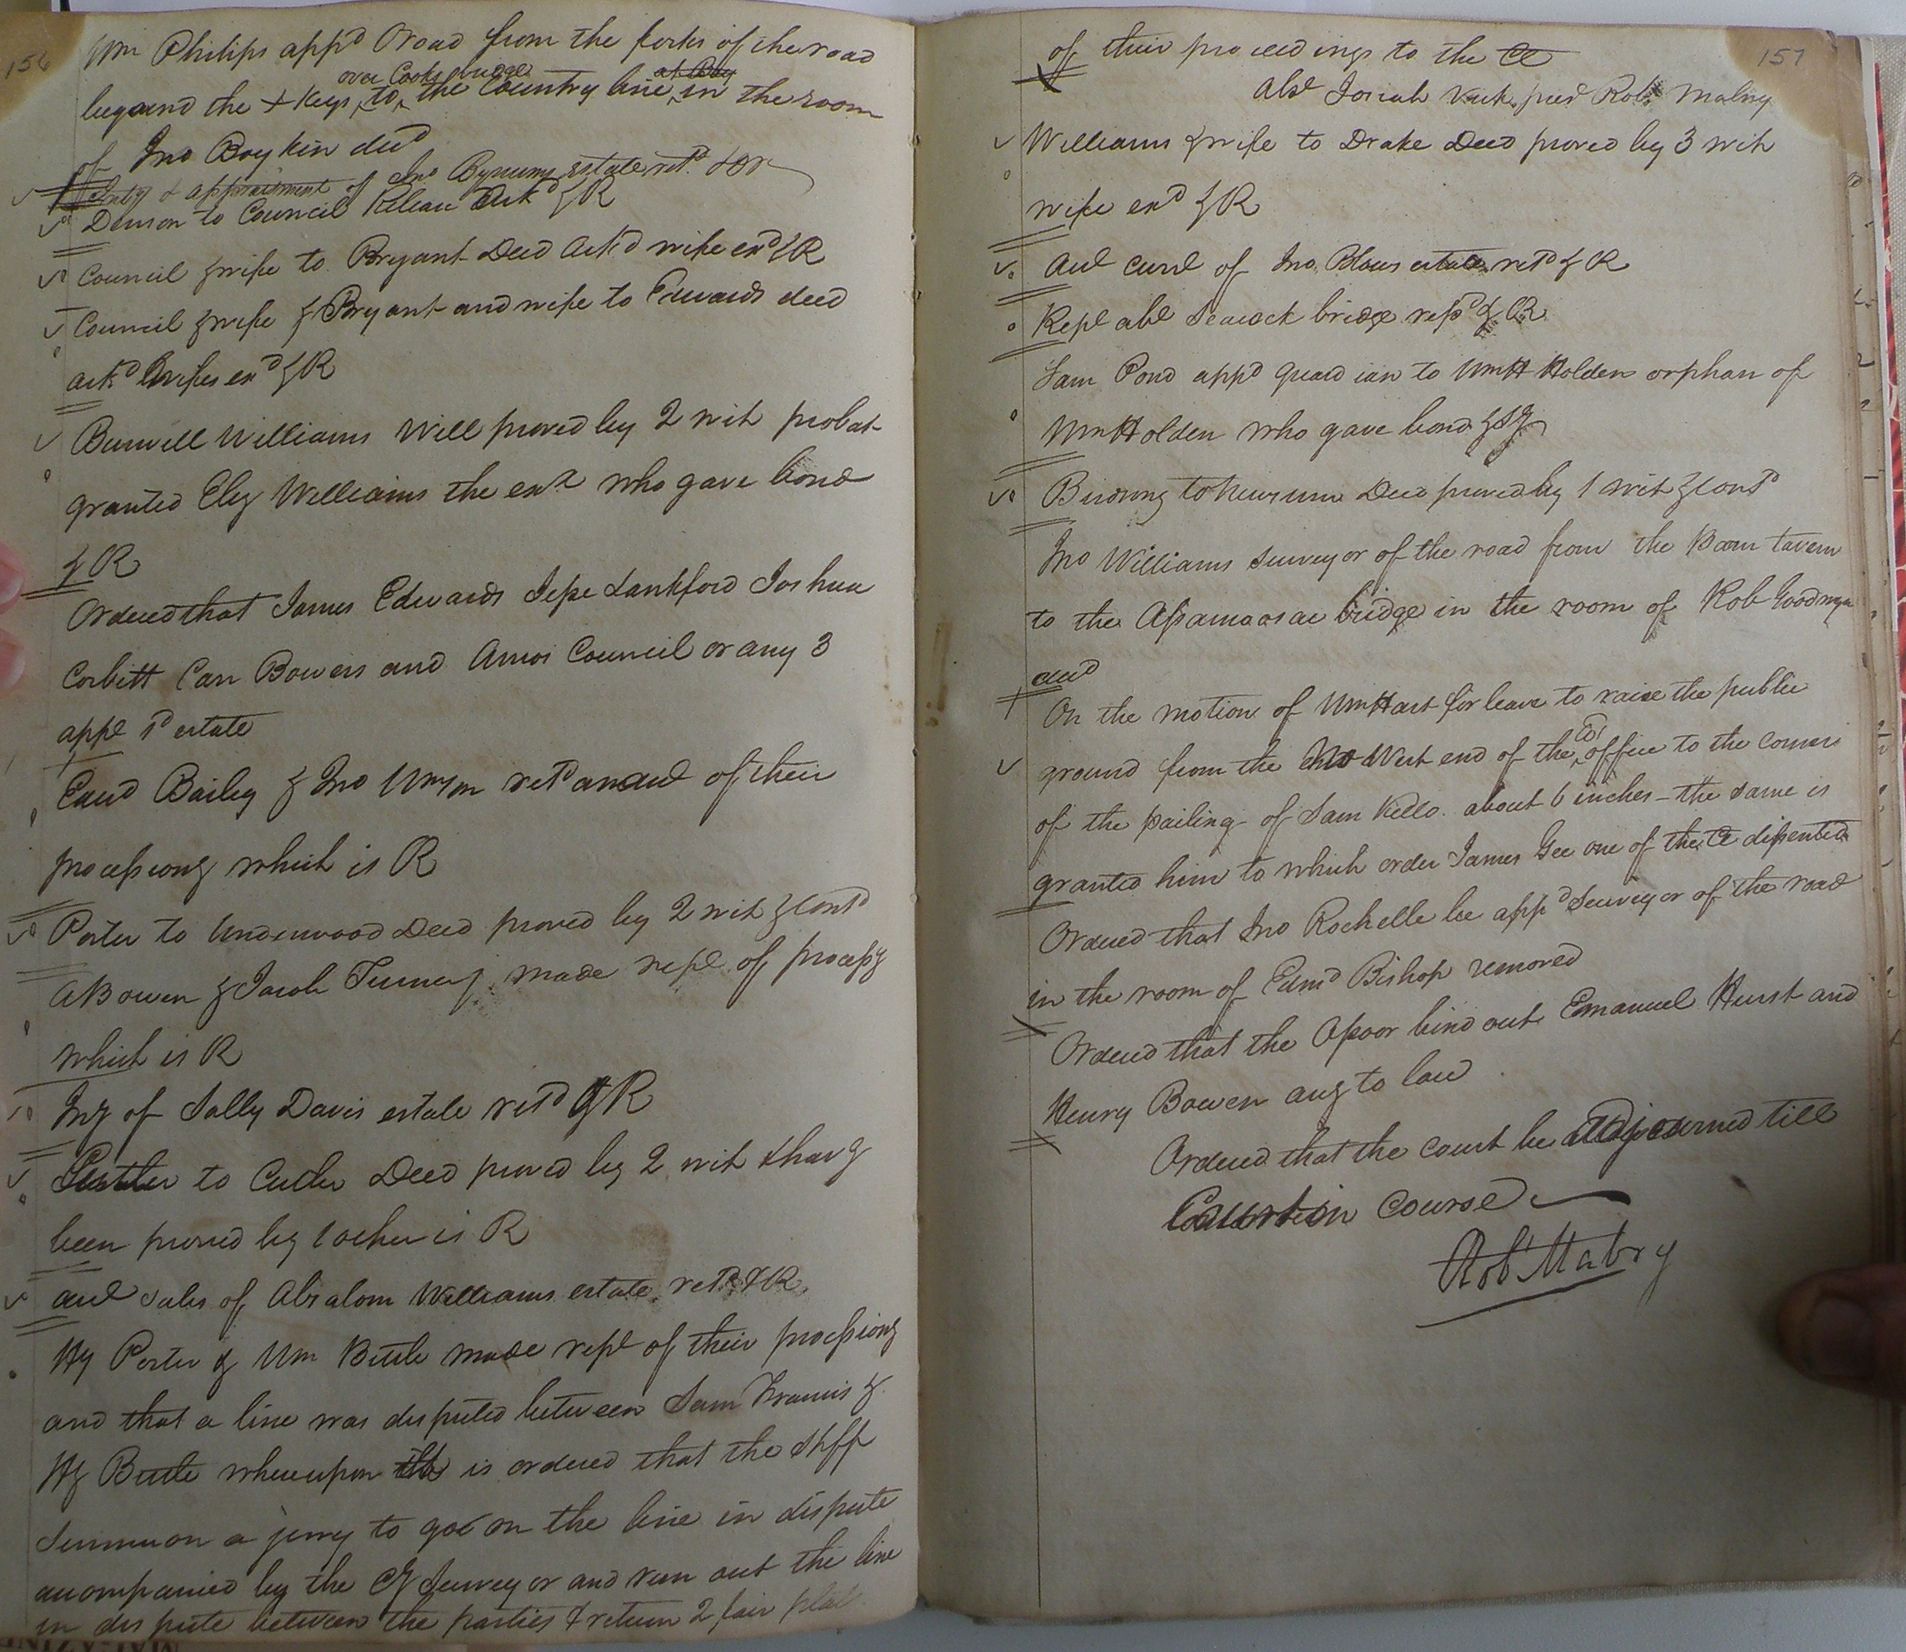 156
Wm Philips appd Oroad from the forks of the road
over Cooks bridge at Boy
beyound the X Keys to the Country line in the room
of Jno Boykin decd
Invy & appraisment of Jno Bynums estate retd & OR
Denson to Council Release Ackd & R
Council & wife to Bryant Deed Ackd wife exd & R
Council & wife & Bryant and wife to Edwards deed
ackd Wifes exd & R
Burwell Williams Will proved by 2 wit probat
granted Eliz Williams the exx who gave bond
& R
Ordered that James Edwards Jesse Lankford Joshua
Corbitt Carr Bowers and Amos Council or any 3
appr sd estate
Edwd Bailey & Jno retd an acct of their
processiong which is R
Porter to Underwood Deed proved by 2 wit & contd
A Bowen & Jacob Turner made rept of processg
which is R
Iny of Sally Davis estate retd & R
to Cutler Deed proved by 2 wit & havg
been proved by 1 other is R
acct sales of Absalom Williams estate retd & R
Hy Porter & Wm Bittle made rept of their processiong
and that a line was disputed between Sam Francis &
Hy Bittle whereupon it is ordered that the Shff
Summon a jury to goe on the line in dispute
accompanied by the Cy Surveyor and run out the line
in dispute between the parties & return 2 fair plats
157
of their proceedings to the Ct
Abst Josiah Vick prest Robt Mabry
Williams & wife to Drake Deed proved by 3 wit
wife exd & R
Acct curt of Jno Blows estate retd & R
Rept abt Seacock bridge retd & OR
Sam Pond appd guardian to Wm H Holden orphan of
Wm Holden who gave bond &
to Newsum Deed proved by 1 wit & contd
Jno Williams Surveyor of the road from the Barn tavern
to the Assamoosac bridge in the room of Rob Goodwyn
decd
On the motion of Wm Hart for leave to raise the public
ground from the No West end of the Cts office to the corner
of the pailing of Sam Kello about 6 inches - the same is
granted him to which order James Gee one of the Ct dissented
Ordered that Jno Rochelle be appd Surveyor of the road
in the room of Edmd Bishop removed
Ordered that the Opoor bind out Emanuel Hurst and
Henry Bowen accg to law
Ordered that the court be adjourned till
Court in Course
Robt Mabry